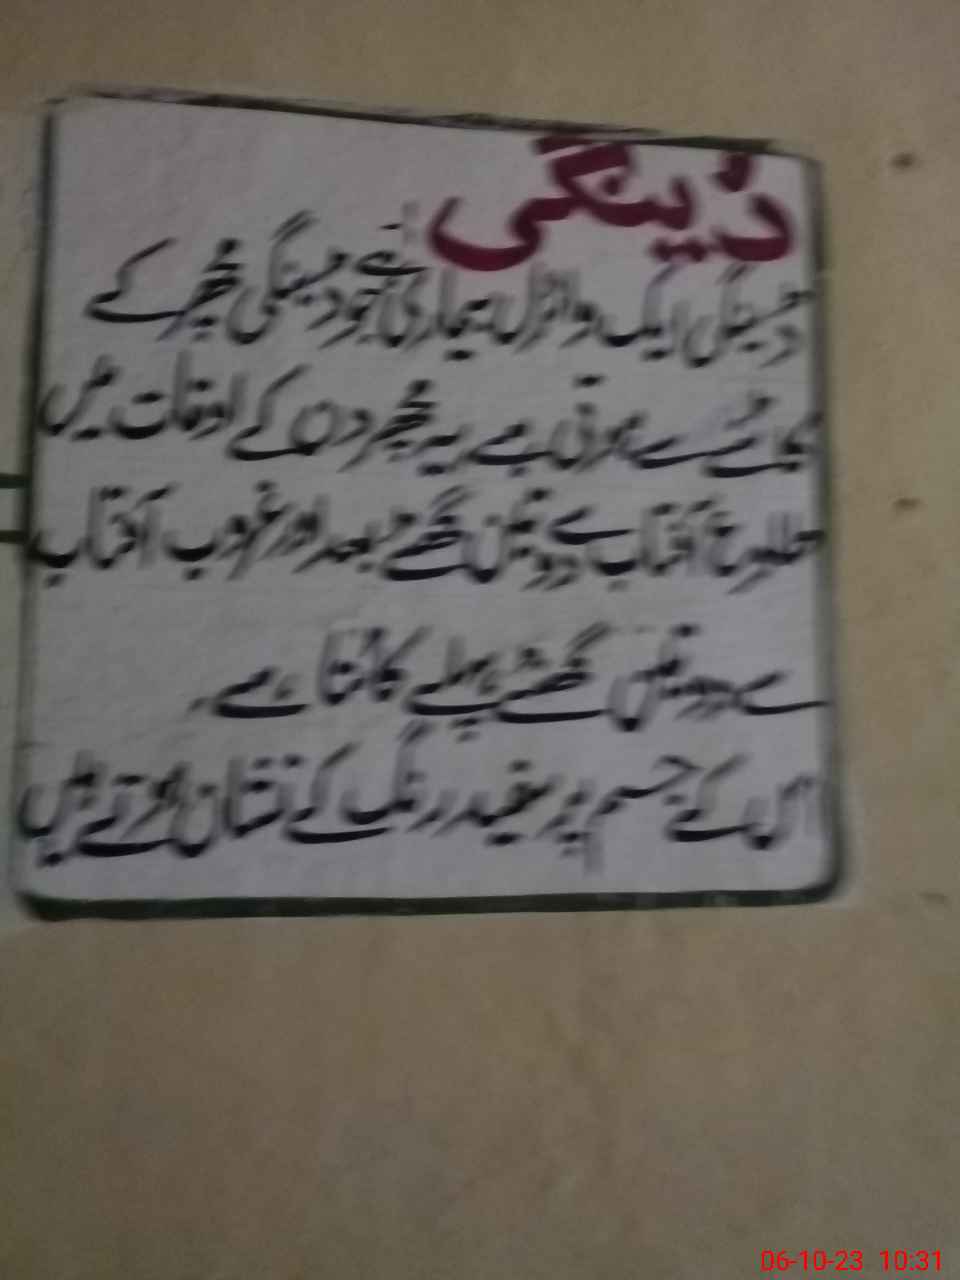 ڈینگی
ڈینگی ایک وائرل بیماری ہے جو ڈینگی مچھر کے
کاٹنے سے ہوتی ہے یہ مچھر دن کے اوقات میں
طلوع آفتاب سے دو تین گھنٹے بعد اور غروب آفتاب
سے دو تین گھنٹے پہلے کاٹتا ہے۔
اس کے جسم پر سفید رنگ کے نشان ہوتے ہیں
06-10-23 10:31